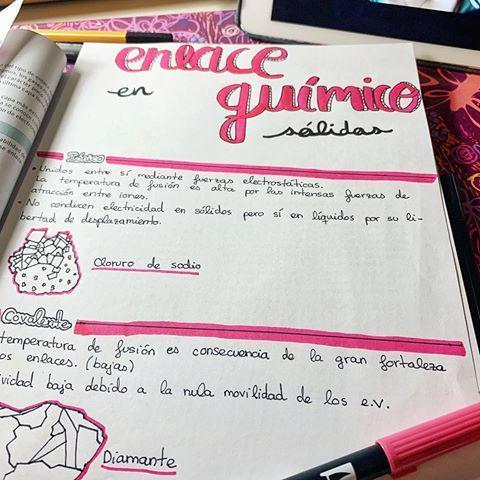 enlace
en químico
sólidos
Iónico
- Unidos entre sí mediante fuerzas electrostáticas.
La temperatura de fusión es alta por las intensas fuerzas de
atracción entre iones.
- No conducen electricidad en sólidos pero sí en líquidos por su li-
bertad de desplazamiento.
Cloruro de sodio
Covalente
temperatura de fusión es consecuencia de la gran fortaleza
os enlaces. (bajas)
ividad baja debido a la nula movilidad de los e.v.
Diamante